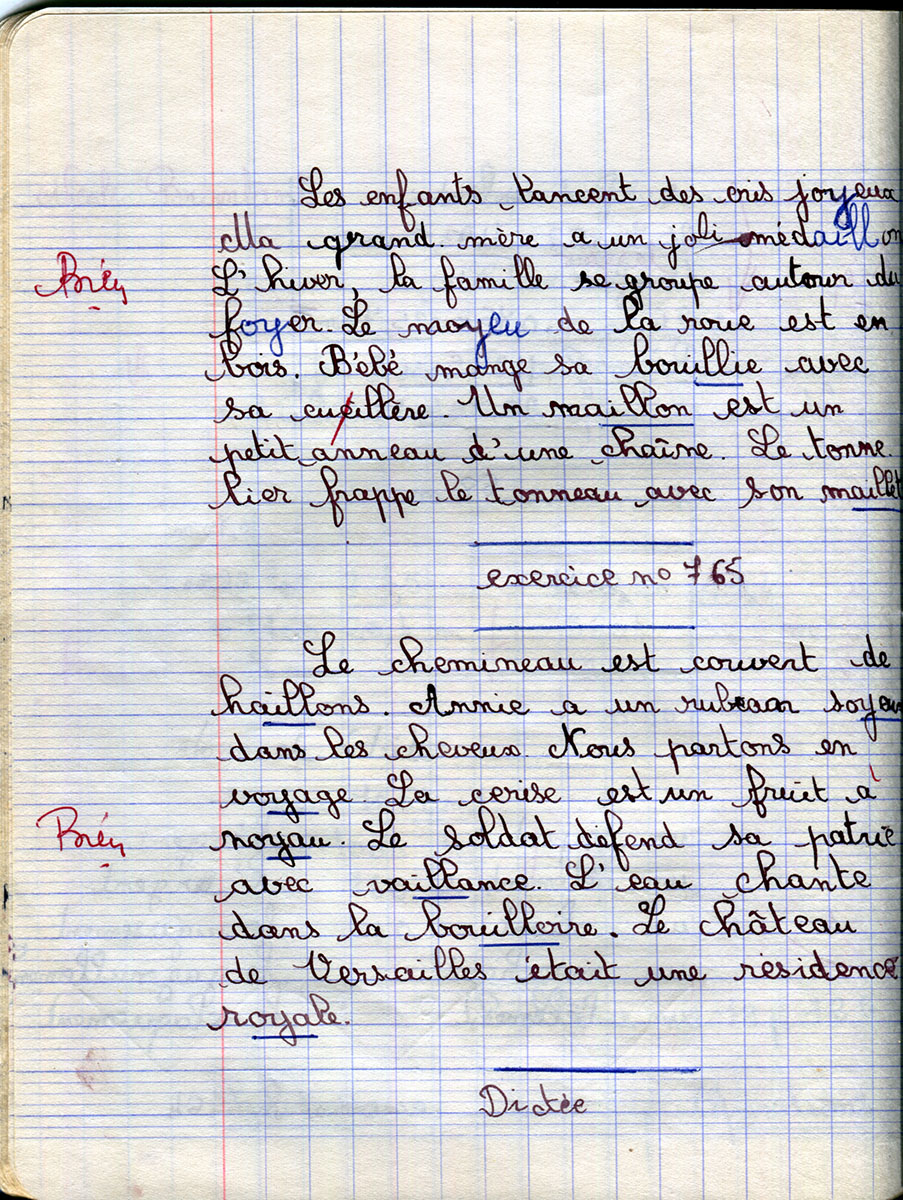 Les enfants lancent des cris joyeux
Ma grand. mère a un joli médaillon
Bien
L'hiver, la famille se groupe autour du
foyer. Le moyeu de la roue est en
bois. Bébé mange sa bouillie avec
sa cueillère. Un maillon est un
petit anneau d'une chaîne. Le tonne
lier frappe le tonneau avec son maillet
exercice no 765
Le chemineau est couvert de
haillons. Annie a un ruban soyeux
dans les cheveux. Nous partons en
voyage. La cerise est un fruit à
Bien
noyau. Le soldat défend sa patrie
avec vaillance. L'eau chante
dans la bouilloire. Le château
de Versailles était une résidence
royale.
Dictée